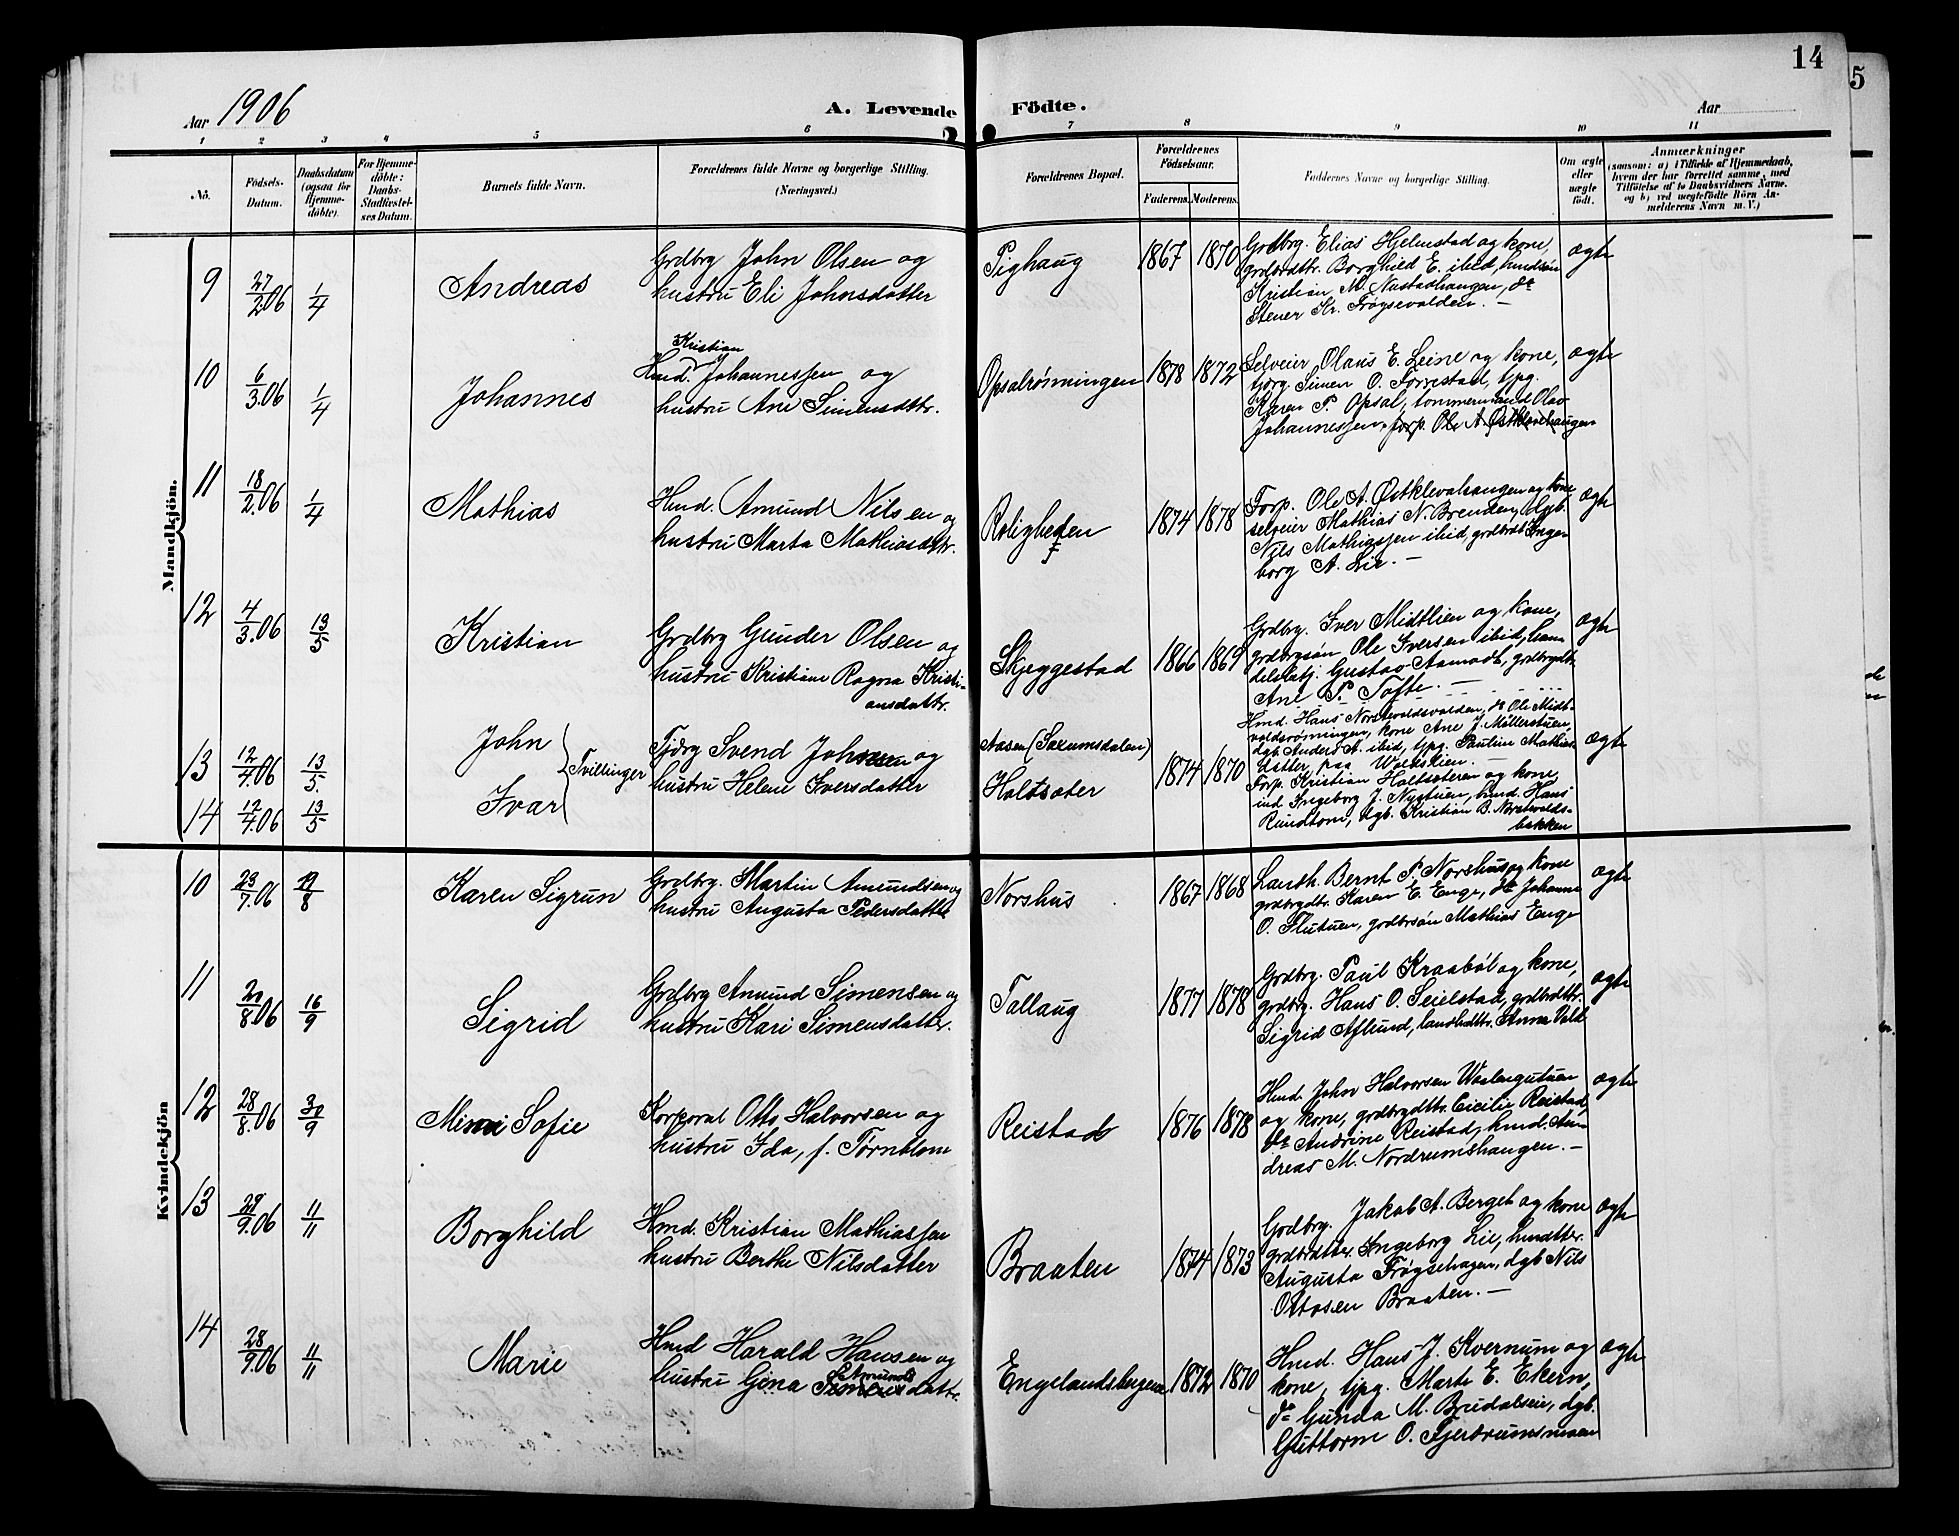 14
5
Aar 1906
A. Levende Födte.
Aar
1 2 3 4 5 6 7 8 9 10 11
No.
Födsels-Datum.
Daabsdatum (ogsaa for Hjemmedöbte).
For Hjemmedöbte: Daabs-Stadfæstelses Datum.
Barnets fulde Navn.
Forældrenes fulde Navne og borgerlige Stilling. (Næringsvei.)
Forældrenes Bopæl.
Forældrenes Födselsaar.
Faderens. Moderens.
Faddernes Navne og borgerlige Stilling.
Om ægte eller uægte födt.
Anmærkninger
(saasom: a) i Tilfælde af Hjemmedaab, hvem der har forrettet samme, med Tilföielse af to Daabsvidners Navne. og b) ved uægtefödte Börn Anmelderens Navn m. V.)
Mandkjön.
9 27/2.06 1/4 Andreas
Grdbrg John Olsen og
hustru Eli Johnsdatter
Pighaug 1867 1870
Grdbrg. Elias Hjelmstad og kone,
grdbrdttr. Borghild E. ibid, hmdsøn
Kristian M. Nustadhaugen, do
Stener Kr. Frøysevolden. —
ægte
10 6/3.06 1/4 Johannes
Kristian
Hmd. Johannessen og
hustru Ane Simensdttr.
Opsalrønningen 1878 1872
Selveier Olaus E. Leine og kone,
tjdrg Simen O. Forrestad, tjpg.
Karen P. Opsal, tømmermand Olav
Johannessen, forp. Ole A. Østklevehaugen
ægte
11 18/2.06 1/4 Mathias
Hmd. Amund Nilsen og
hustru Marta Mathiasdttr.
Roligheden 1874 1878
Forp. Ole A. Østklevehaugen og kone
selveier Mathias N. Brenden, dgb.
Nils Mathiassen ibid, grdbrdtr Inge-
borg A. Lie. —
ægte
12 4/3.06 13/5 Kristian
Grdbrg Gunder Olsen og
hustru Kristiane Ragna Kristi-
ansdattr.
Skjeggestad 1866 1869
Grdbrg. Iver Midtlien og kone,
grdbrgsøn Ole Iversen ibid, han-
delsbtj. Gustav Aamodt, grdbrgdtr.
Ane P. Tofte. —
ægte
13 12/4.06 13/5. John
14 12/4.06 13/5 Ivar
Tvillinger
Tjdrg Svend Johnsen og
hustru Helene Iversdatter
Aasen (Saxumsdalen)
Holtsæter 1874 1870
Hmd. Hans Norstevoldsvolden, do Ole Midt-
voldsrønningen, kone Ane J. Møllerstuen,
dgb. Anders A. ibid, tjpg. Pauline Mathias-
datter paa Woldslien. —
Forp. Kristian Holtsæteren og kone,
ind. Ingeborg J. Nystuen, hmd. Hans
Rundtom, dgb. Kristian B. Norstvolds-
bakken
ægte
Kvindekjön
10 23/7.06 19/8 Karen Sigrun
Grdbrg. Martin Amundsen og
hustru Augusta Pedersdatter
Norshus 1867 1868
Landh. Bernt P. Norshus og kone
grdbrgdtr. Karen E. Enge, do Johanne
O. Flutuen, grdbrsøn Mathias Enge
ægte
11 20/8.06 16/9 Sigrid
Grdbrg Amund Simensen og
hustru Kari Simensdatter.
Tallaug 1877 1878
Grdbrg. Paul Kraabøl og kone,
grdbrg. Hans O. Seielstad, grdbrdttr.
Sigrid Aflund, landhdttr. Anna Vold
ægte
12 28/8.06 30/9 Minni Sofie
Korporal Otto Halvorsen og
hustru Ida, f. Törnblom
Reistad 1876 1878
Hmd. Johs Halvorsen Woldengutuen
og kone, grdbrgdttr. Cicilie Reistad,
do Andrine Reistad, hmd. An-
dreas M. Nordrumshaugen. —
ægte
13 29/9.06 11/11 Borghild
Hmd. Kristian Mathiassen
hustru Berthe Nilsdatter
Braaten 1874 1873
Grdbrg. Jakob A. Berget og kone
grdbrdttr. Ingeborg Lie, hmdttr.
Augusta Frøysehagen, dgb Nils
Ottosen Braaten. —
ægte
14 28/9.06 11/11 Marie
Hmd Harald Hansen og
hustru Gina Amundsdattr.
Engelandsengene 1872 1870
Hmd. Hans J. Kvernum og
kone, tjpg. Marte E. Ekern,
do Gunda M. Brudalseie, dgb.
Guttorm O. Fjerdrumsmoen
ægte